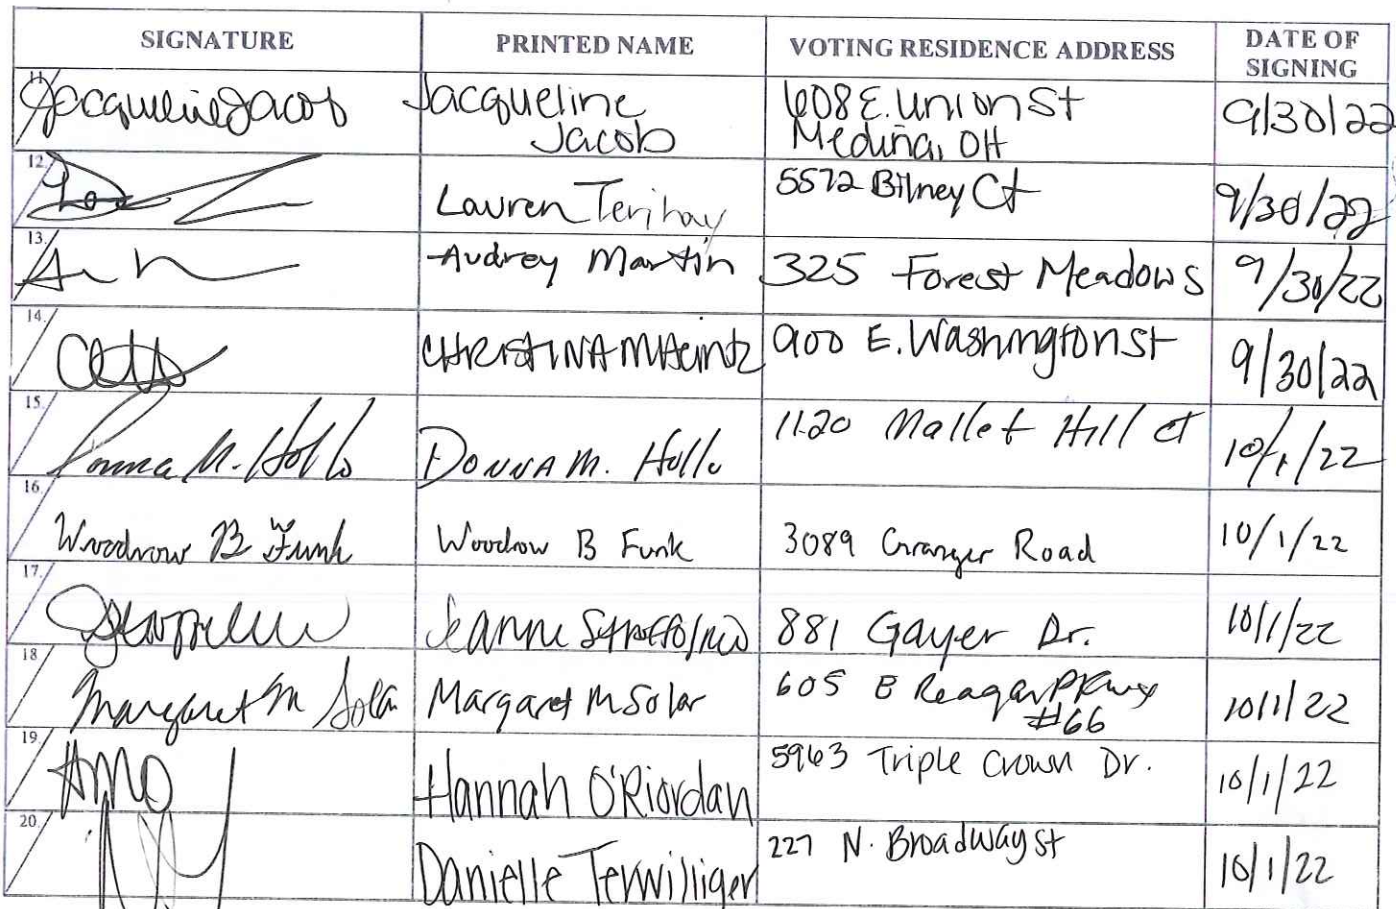 SIGNATURE PRINTED NAME VOTING RESIDENCE ADDRESS DATE OF SIGNING
11. Jacqueline Jacob Jacqueline Jacob 608 E. Union St Medina, OH 9/30/22
12. Lauren Terihay 5572 Bilney Ct 9/30/22
13. Audrey Martin 325 Forest Meadows 9/30/22
14. CHRISTINA 900 E. Washington St 9/30/22
15. Donna M. Hollo DONNA M. Hollo 1120 Mallet Hill ct 10/1/22
16. Woodrow B Funk Woodrow B Funk 3089 Granger Road 10/1/22
17. Jeanne 881 Gayer Dr. 10/1/22
18 Margaret M Solar Margaret M Solar 605 E Reagan Pkwy #66 10/1/22
19. Hannah O'Riordan 5963 Triple Crown Dr. 10/1/22
20. Danielle Terwilliger 227 N. Broadway St 10/1/22